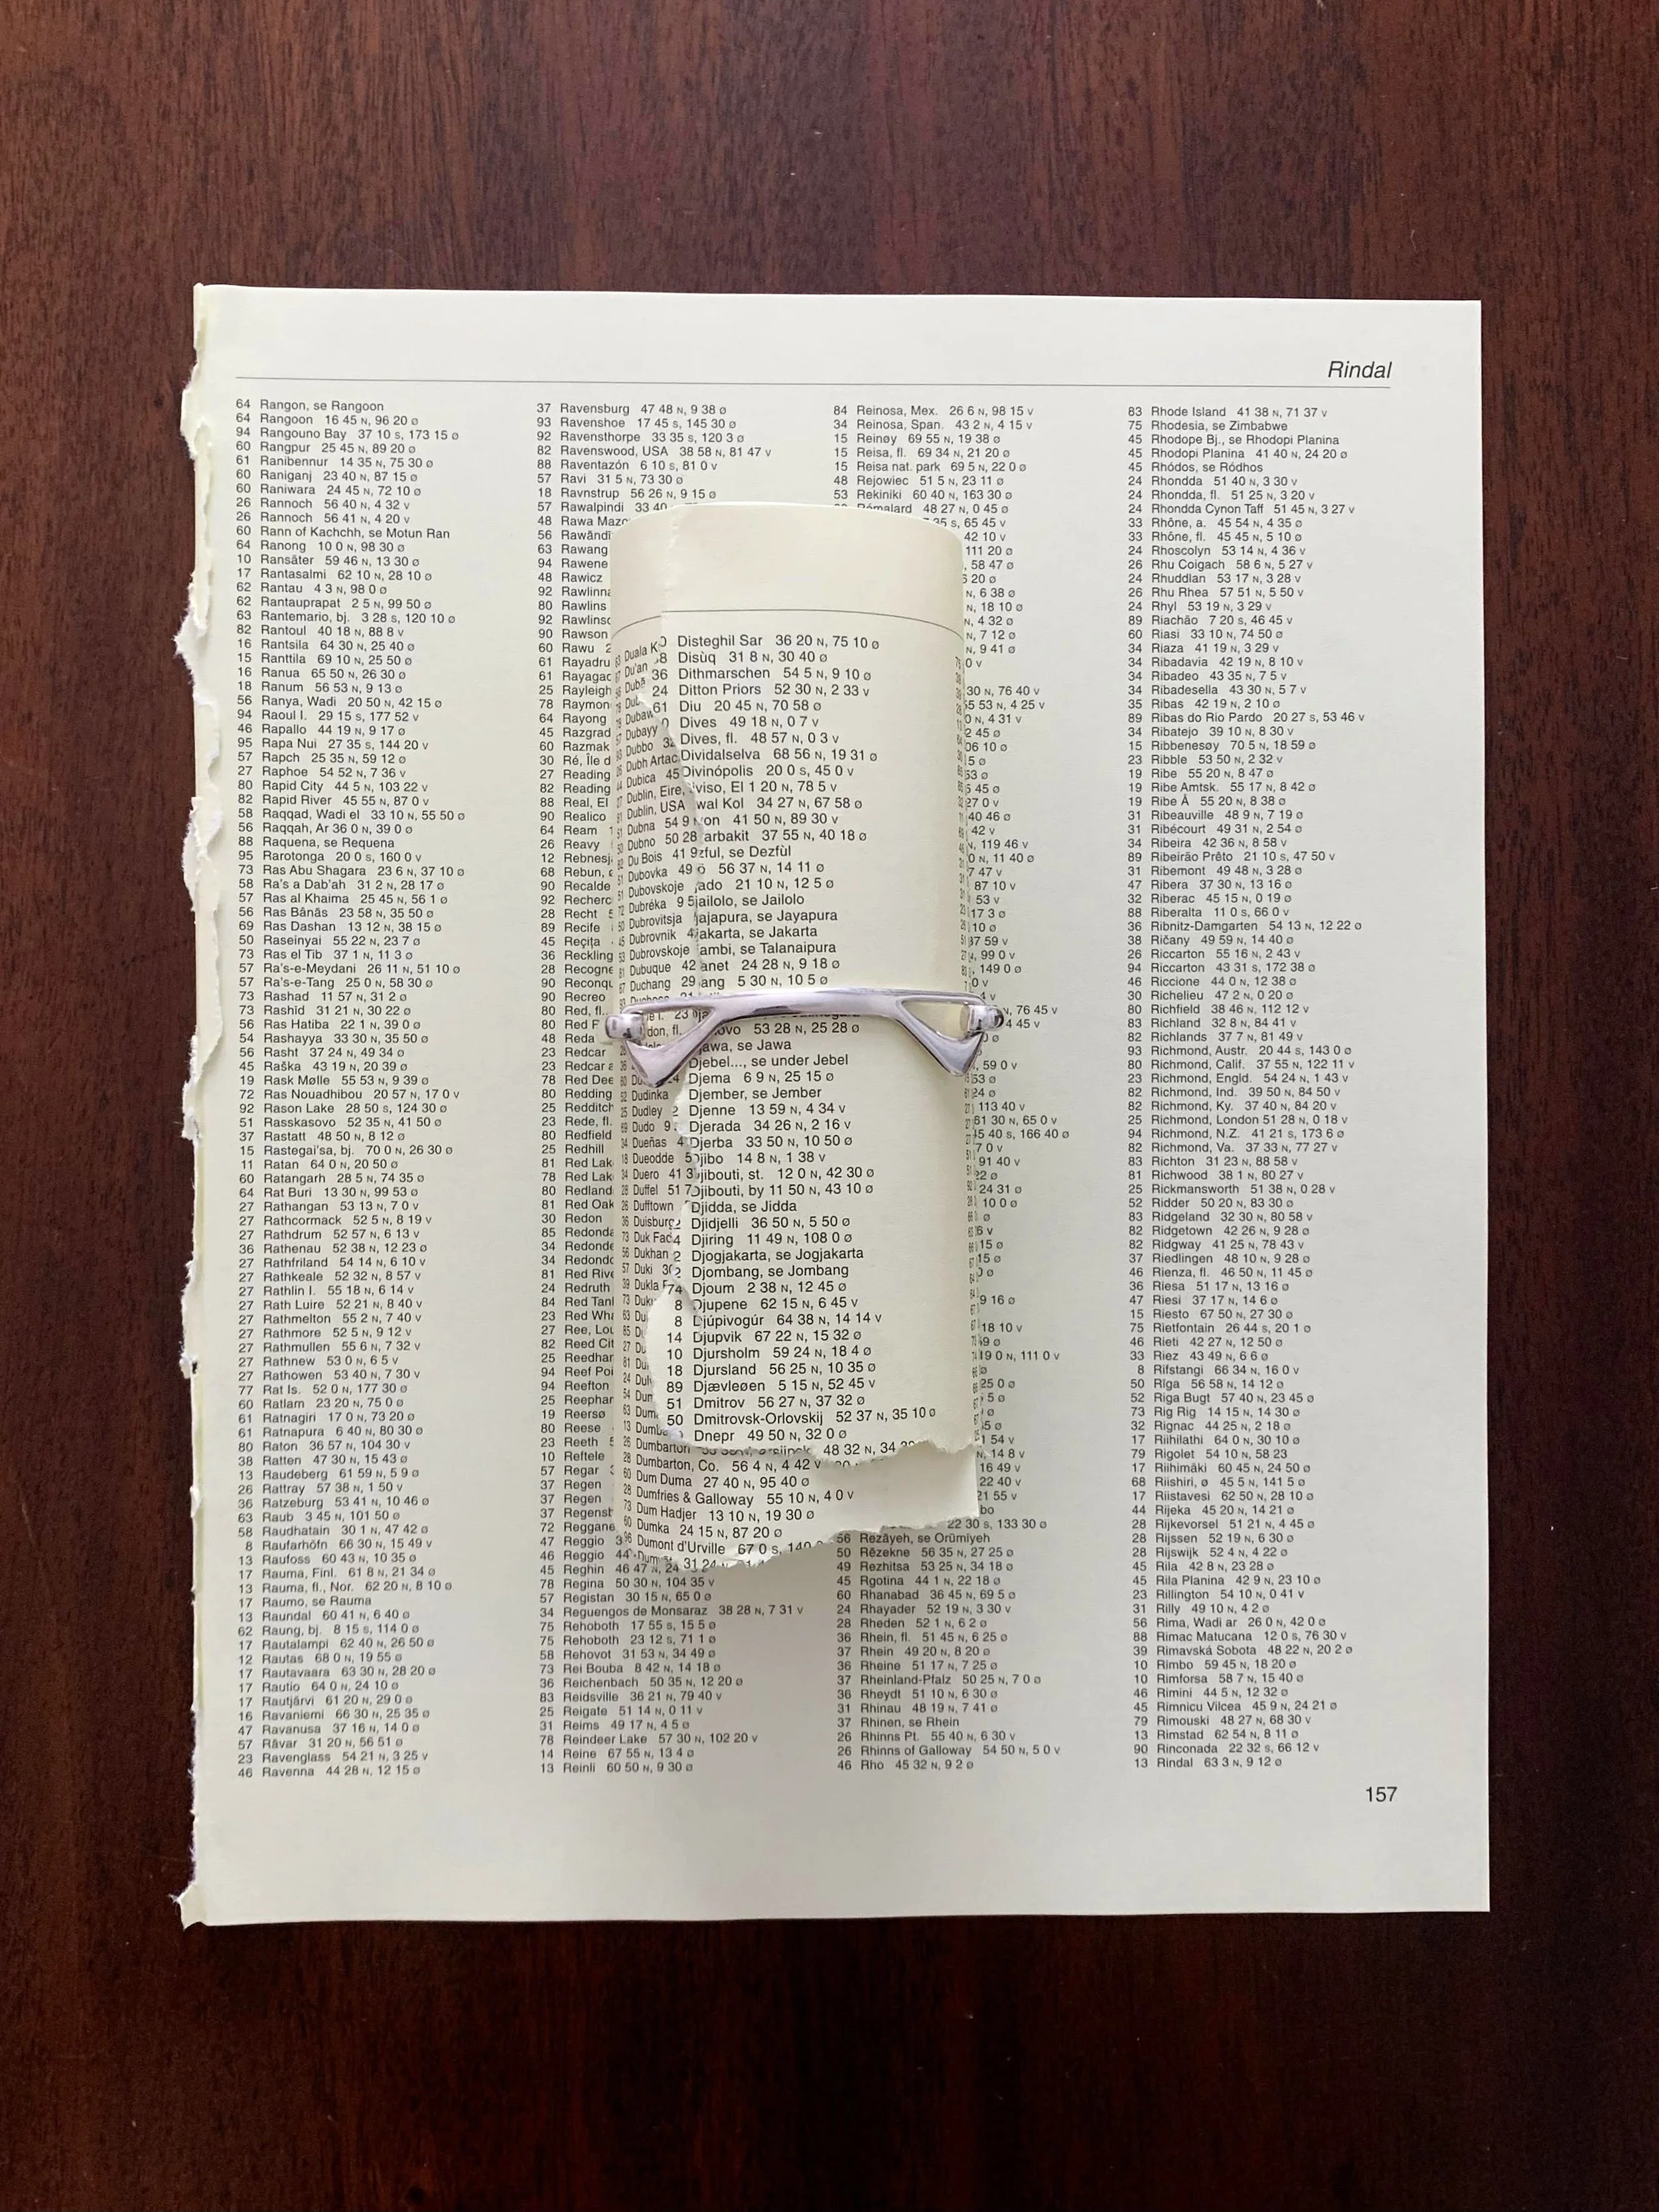 Rindal
64 Rangon, se Rangoon
64 Rangoon 16 45 N, 96 20 ø
94 Rangouno Bay 37 10 S, 173 15 ø
60 Rangpur 25 45 N, 89 20 ø
61 Ranibennur 14 35 N, 75 30 ø
60 Raniganj 23 40 N, 87 15 ø
60 Raniwara 24 45 N, 72 10 ø
26 Rannoch 56 40 N, 4 32 V
26 Rannoch 56 41 N, 4 20 V
60 Rann of Kachchh, se Motun Ran
64 Ranong 10 0 N, 98 30 ø
10 Ransäter 59 46 N, 13 30 ø
17 Rantasalmi 62 10 N, 28 10 ø
62 Rantau 4 3 N, 98 0 ø
62 Rantauprapat 2 5 N, 99 50 ø
63 Rantemario, bj. 3 28 S, 120 10 ø
82 Rantoul 40 18 N, 88 8 V
16 Rantsila 64 30 N, 25 40 ø
15 Ranttila 69 10 N, 25 50 ø
16 Ranua 65 50 N, 26 30 ø
18 Ranum 56 53 N, 9 13 ø
56 Ranya, Wadi 20 50 N, 42 15 ø
94 Raoul I. 29 15 S, 177 52 V
46 Rapallo 44 19 N, 9 17 ø
95 Rapa Nui 27 35 S, 144 20 V
57 Rapch 25 35 N, 59 12 ø
27 Raphoe 54 52 N, 7 36 V
80 Rapid City 44 5 N, 103 22 V
82 Rapid River 45 55 N, 87 0 V
58 Raqqad, Wadi el 33 10 N, 55 50 ø
56 Raqqah, Ar 36 0 N, 39 0 ø
88 Raquena, se Requena
95 Rarotonga 20 0 S, 160 0 V
73 Ras Abu Shagara 23 6 N, 37 10 ø
58 Ra's a Dab'ah 31 2 N, 28 17 ø
57 Ras al Khaima 25 45 N, 56 1 ø
56 Ras Bânâs 23 58 N, 35 50 ø
69 Ras Dashan 13 12 N, 38 15 ø
50 Raseinyai 55 22 N, 23 7 ø
73 Ras el Tib 37 1 N, 11 3 ø
57 Ra's-e-Meydani 26 11 N, 51 10 ø
57 Ra's-e-Tang 25 0 N, 58 30 ø
73 Rashad 11 57 N, 31 2 ø
73 Rashîd 31 21 N, 30 22 ø
56 Ras Hatiba 22 1 N, 39 0 ø
54 Rashayya 33 30 N, 35 50 ø
56 Rasht 37 24 N, 49 34 ø
45 Raška 43 19 N, 20 39 ø
19 Rask Mølle 55 53 N, 9 39 ø
72 Ras Nouadhibou 20 57 N, 17 0 V
92 Rason Lake 28 50 S, 124 30 ø
51 Rasskasovo 52 35 N, 41 50 ø
37 Rastatt 48 50 N, 8 12 ø
15 Rastegai'sa, bj. 70 0 N, 26 30 ø
11 Ratan 64 0 N, 20 50 ø
60 Ratangarh 28 5 N, 74 35 ø
64 Rat Buri 13 30 N, 99 53 ø
27 Rathangan 53 13 N, 7 0 V
27 Rathcormack 52 5 N, 8 19 V
27 Rathdrum 52 57 N, 6 13 V
36 Rathenau 52 38 N, 12 23 ø
27 Rathfriland 54 14 N, 6 10 V
27 Rathkeale 52 32 N, 8 57 V
27 Rathlin I. 55 18 N, 6 14 V
27 Rath Luire 52 21 N, 8 40 V
27 Rathmelton 55 2 N, 7 40 V
27 Rathmore 52 5 N, 9 12 V
27 Rathmullen 55 6 N, 7 32 V
27 Rathnew 53 0 N, 6 5 V
27 Rathowen 53 40 N, 7 30 V
77 Rat Is. 52 0 N, 177 30 ø
60 Ratlam 23 20 N, 75 0 ø
61 Ratnagiri 17 0 N, 73 20 ø
61 Ratnapura 6 40 N, 80 30 ø
80 Raton 36 57 N, 104 30 V
38 Ratten 47 30 N, 15 43 ø
13 Raudeberg 61 59 N, 5 9 ø
26 Rattray 57 38 N, 1 50 V
36 Ratzeburg 53 41 N, 10 46 ø
63 Raub 3 45 N, 101 50 ø
58 Raudhatain 30 1 N, 47 42 ø
8 Raufarhöfn 66 30 N, 15 49 V
13 Raufoss 60 43 N, 10 35 ø
17 Rauma, Finl. 61 8 N, 21 34 ø
13 Rauma, fl., Nor. 62 20 N, 8 10 ø
17 Raumo, se Rauma
13 Raundal 60 41 N, 6 40 ø
62 Raung, bj. 8 15 S, 114 0 ø
17 Rautalampi 62 40 N, 26 50 ø
12 Rautas 68 0 N, 19 55 ø
17 Rautavaara 63 30 N, 28 20 ø
17 Rautio 64 0 N, 24 10 ø
17 Rautjärvi 61 20 N, 29 0 ø
16 Ravaniemi 66 30 N, 25 35 ø
47 Ravanusa 37 16 N, 14 0 ø
57 Râvar 31 20 N, 56 51 ø
23 Ravenglass 54 21 N, 3 25 V
46 Ravenna 44 28 N, 12 15 ø
37 Ravensburg 47 48 N, 9 38 ø
93 Ravenshoe 17 45 S, 145 30 ø
92 Ravensthorpe 33 35 S, 120 3 ø
82 Ravenswood, USA 38 58 N, 81 47 V
88 Raventazón 6 10 S, 81 0 V
57 Ravi 31 5 N, 73 30 ø
18 Ravnstrup 56 26 N, 9 15 ø
57 Rawalpindi 33 40
48 Rawa
56
63 Rawang
94 Rawene
48 Rawicz
92
80 Rawlins
92
90 Rawson
60 Rawu
61
61
25 Rayleigh
78
64 Rayong
45
60 Razmak
30 Ré, Île
27 Reading
82 Reading
88 Real, El
90 Realico
64 Ream
26 Reavy
12
68 Rebun,
90 Recalde
92
28 Recht
89 Recife
45 Reçiţa
36
28
90
90 Recreo
80 Red, fl.
80 Red
48 Reda
23 Redcar
23 Redcar
78 Red Dee
80 Redding
25 Redditch
23 Rede, fl.
80 Redfield
25 Redhill
81 Red Lak
78 Red Lak
80 Redland
81 Red Oak
30 Redon
85
34
34
81 Red
24 Redruth
84 Red
23 Red
27 Ree,
82 Reed
25
94 Reef
94 Reefton
25
19 Reersø
80 Reese
23 Reeth
10 Reftele
57 Regar
37 Regen
37 Regen
37
72
47 Reggio
46 Reggio 44
45 Reghin 46 47 N, 24
78 Regina 50 30 N, 104 35 V
57 Registan 30 15 N, 65 0 ø
34 Reguengos de Monsaraz 38 28 N, 7 31 V
75 Rehoboth 17 55 S, 15 5 ø
75 Rehoboth 23 12 S, 71 1 ø
58 Rehovot 31 53 N, 34 49 ø
73 Rei Bouba 8 42 N, 14 18 ø
36 Reichenbach 50 35 N, 12 20 ø
83 Reidsville 36 21 N, 79 40 V
25 Reigate 51 14 N, 0 11 V
31 Reims 49 17 N, 4 5 ø
78 Reindeer Lake 57 30 N, 102 20 V
14 Reine 67 55 N, 13 4 ø
13 Reinli 60 50 N, 9 30 ø
Duala
Du'an
Dubayy
Dubbo
Dubh Artac
Dubica 45
Dublin, Eire,
Dublin, USA
Dubna 54 9
Dubno 50 28
Du Bois 41 9
Dubovka 49
Dubovskoje
Dubréka 9 5
Dubrovitsja
Dubrovnik 4
Dubrovskoje
Dubuque 42
Duchang 29
don, fl.
Dudinka
Dudley 2
Dudo 9
Dueñas 4
Dueodde 5
Duero 41 3
Duffel 51 7
Dufftown
Duisburg
Duk Fad
Dukhan
Duki 30
Dukla
Dumbarton
28 Dumbarton, Co. 56 4 N, 4 42 V
60 Dum Duma 27 40 N, 95 40 ø
28 Dumfries & Galloway 55 10 N, 4 0 V
73 Dum Hadjer 13 10 N, 19 30 ø
60 Dumka 24 15 N, 87 20 ø
96 Dumont d'Urville 67 0 S, 140
Disteghil Sar 36 20 N, 75 10 ø
Disùq 31 8 N, 30 40 ø
36 Dithmarschen 54 5 N, 9 10 ø
24 Ditton Priors 52 30 N, 2 33 V
61 Diu 20 45 N, 70 58 ø
Dives 49 18 N, 0 7 V
Dives, fl. 48 57 N, 0 3 V
Dividalselva 68 56 N, 19 31 ø
Divinópolis 20 0 S, 45 0 V
viso, El 1 20 N, 78 5 V
wal Kol 34 27 N, 67 58 ø
on 41 50 N, 89 30 V
arbakit 37 55 N, 40 18 ø
zful, se Dezfùl
56 37 N, 14 11 ø
ado 21 10 N, 12 5 ø
jailolo, se Jailolo
jajapura, se Jayapura
jakarta, se Jakarta
ambi, se Talanaipura
anet 24 28 N, 9 18 ø
ang 5 30 N, 10 5 ø
ovo 53 28 N, 25 28 ø
jawa, se Jawa
Djebel..., se under Jebel
Djema 6 9 N, 25 15 ø
Djember, se Jember
Djenne 13 59 N, 4 34 V
Djerada 34 26 N, 2 16 V
Djerba 33 50 N, 10 50 ø
Djibo 14 8 N, 1 38 V
Djibouti, st. 12 0 N, 42 30 ø
Djibouti, by 11 50 N, 43 10 ø
Djidda, se Jidda
Djidjelli 36 50 N, 5 50 ø
Djiring 11 49 N, 108 0 ø
Djogjakarta, se Jogjakarta
Djombang, se Jombang
74 Djoum 2 38 N, 12 45 ø
8 Djupene 62 15 N, 6 45 V
8 Djúpivogúr 64 38 N, 14 14 V
14 Djupvik 67 22 N, 15 32 ø
10 Djursholm 59 24 N, 18 4 ø
18 Djursland 56 25 N, 10 35 ø
89 Djævleøen 5 15 N, 52 45 V
51 Dmitrov 56 27 N, 37 32 ø
50 Dmitrovsk-Orlovskij 52 37 N, 35 10 ø
Dnepr 49 50 N, 32 0 ø
48 32 N, 34
84 Reinosa, Mex. 26 6 N, 98 15 V
34 Reinosa, Span. 43 2 N, 4 15 V
15 Reinøy 69 55 N, 19 38 ø
15 Reisa, fl. 69 34 N, 21 20 ø
15 Reisa nat. park 69 5 N, 22 0 ø
48 Rejowiec 51 5 N, 23 11 ø
53 Rekiniki 60 40 N, 163 30 ø
Rémalard 48 27 N, 0 45 ø
35 S, 65 45 V
42 10 V
111 20 ø
58 47 ø
20 ø
N, 6 38 ø
N, 18 10 ø
N, 4 32 ø
N, 7 12 ø
N, 9 41 ø
0 V
30 N, 76 40 V
55 53 N, 4 25 V
0 N, 4 31 V
2 45 ø
06 10 ø
5 ø
53 ø
5 45 ø
27 0 V
40 46 ø
42 V
N, 119 46 V
0 N, 11 40 ø
7 47 V
87 10 V
53 V
17 3 ø
10 ø
37 59 V
99 0 V
149 0 ø
0 V
4 V
N, 76 45 V
4 45 V
N, 59 0 V
53 ø
24 ø
113 40 V
61 30 N, 65 0 V
45 40 S, 166 40 ø
7 0 V
91 40 V
22 ø
24 31 ø
10 0 ø
ø
6 V
15 ø
15 ø
0 ø
9 16 ø
18 10 V
49 ø
19 0 N, 111 0 V
ø
25 0 ø
5 ø
ø
5 ø
1 54 V
N, 14 8 V
16 49 V
22 40 V
21 55 V
bo
22 30 S, 133 30 ø
56 Rezâyeh, se Orūmīyeh
50 Rēzekne 56 35 N, 27 25 ø
49 Rezhitsa 53 25 N, 34 18 ø
45 Rgotina 44 1 N, 22 18 ø
60 Rhanabad 36 45 N, 69 5 ø
24 Rhayader 52 19 N, 3 30 V
28 Rheden 52 1 N, 6 2 ø
36 Rhein, fl. 51 45 N, 6 25 ø
37 Rhein 49 20 N, 8 20 ø
36 Rheine 51 17 N, 7 25 ø
37 Rheinland-Pfalz 50 25 N, 7 0 ø
36 Rheydt 51 10 N, 6 30 ø
31 Rhinau 48 19 N, 7 41 ø
37 Rhinen, se Rhein
26 Rhinns Pt. 55 40 N, 6 30 V
26 Rhinns of Galloway 54 50 N, 5 0 V
46 Rho 45 32 N, 9 2 ø
83 Rhode Island 41 38 N, 71 37 V
75 Rhodesia, se Zimbabwe
45 Rhodope Bj., se Rhodopi Planina
45 Rhodopi Planina 41 40 N, 24 20 ø
45 Rhódos, se Ródhos
24 Rhondda 51 40 N, 3 30 V
24 Rhondda, fl. 51 25 N, 3 20 V
24 Rhondda Cynon Taff 51 45 N, 3 27 V
33 Rhône, a. 45 54 N, 4 35 ø
33 Rhône, fl. 45 45 N, 5 10 ø
24 Rhoscolyn 53 14 N, 4 36 V
26 Rhu Coigach 58 6 N, 5 27 V
24 Rhuddlan 53 17 N, 3 28 V
26 Rhu Rhea 57 51 N, 5 50 V
24 Rhyl 53 19 N, 3 29 V
89 Riachão 7 20 S, 46 45 V
60 Riasi 33 10 N, 74 50 ø
34 Riaza 41 19 N, 3 29 V
34 Ribadavia 42 19 N, 8 10 V
34 Ribadeo 43 35 N, 7 5 V
34 Ribadesella 43 30 N, 5 7 V
35 Ribas 42 19 N, 2 10 ø
89 Ribas do Rio Pardo 20 27 S, 53 46 V
34 Ribatejo 39 10 N, 8 30 V
15 Ribbenesøy 70 5 N, 18 59 ø
23 Ribble 53 50 N, 2 32 V
19 Ribe 55 20 N, 8 47 ø
19 Ribe Amtsk. 55 17 N, 8 42 ø
19 Ribe Å 55 20 N, 8 38 ø
31 Ribeauville 48 9 N, 7 19 ø
31 Ribécourt 49 31 N, 2 54 ø
34 Ribeira 42 36 N, 8 58 V
89 Ribeirão Prêto 21 10 S, 47 50 V
31 Ribemont 49 48 N, 3 28 ø
47 Ribera 37 30 N, 13 16 ø
32 Riberac 45 15 N, 0 19 ø
88 Riberalta 11 0 S, 66 0 V
36 Ribnitz-Damgarten 54 13 N, 12 22 ø
38 Ričany 49 59 N, 14 40 ø
26 Riccarton 55 16 N, 2 43 V
94 Riccarton 43 31 S, 172 38 ø
46 Riccione 44 0 N, 12 38 ø
30 Richelieu 47 2 N, 0 20 ø
80 Richfield 38 46 N, 112 12 V
83 Richland 32 8 N, 84 41 V
82 Richlands 37 7 N, 81 49 V
93 Richmond, Austr. 20 44 S, 143 0 ø
80 Richmond, Calif. 37 55 N, 122 11 V
23 Richmond, Engld. 54 24 N, 1 43 V
82 Richmond, Ind. 39 50 N, 84 50 V
82 Richmond, Ky. 37 40 N, 84 20 V
25 Richmond, London 51 28 N, 0 18 V
94 Richmond, N.Z. 41 21 S, 173 6 ø
82 Richmond, Va. 37 33 N, 77 27 V
83 Richton 31 23 N, 88 58 V
81 Richwood 38 1 N, 80 27 V
25 Rickmansworth 51 38 N, 0 28 V
52 Ridder 50 20 N, 83 30 ø
83 Ridgeland 32 30 N, 80 58 V
82 Ridgetown 42 26 N, 9 28 ø
82 Ridgway 41 25 N, 78 43 V
37 Riedlingen 48 10 N, 9 28 ø
46 Rienza, fl. 46 50 N, 11 45 ø
36 Riesa 51 17 N, 13 16 ø
47 Riesi 37 17 N, 14 6 ø
15 Riesto 67 50 N, 27 30 ø
75 Rietfontain 26 44 S, 20 1 ø
46 Rieti 42 27 N, 12 50 ø
33 Riez 43 49 N, 6 6 ø
8 Rifstangi 66 34 N, 16 0 V
50 Rīga 56 58 N, 14 12 ø
52 Riga Bugt 57 40 N, 23 45 ø
73 Rig Rig 14 15 N, 14 30 ø
32 Rignac 44 25 N, 2 18 ø
17 Riihilathi 64 0 N, 30 10 ø
79 Rigolet 54 10 N, 58 23
17 Riihimäki 60 45 N, 24 50 ø
68 Riishiri, ø 45 5 N, 141 5 ø
17 Riistavesi 62 50 N, 28 10 ø
44 Rijeka 45 20 N, 14 21 ø
28 Rijkevorsel 51 21 N, 4 45 ø
28 Rijssen 52 19 N, 6 30 ø
28 Rijswijk 52 4 N, 4 22 ø
45 Rila 42 8 N, 23 28 ø
45 Rila Planina 42 9 N, 23 10 ø
23 Rillington 54 10 N, 0 41 V
31 Rilly 49 10 N, 4 2 ø
56 Rima, Wadi ar 26 0 N, 42 0 ø
88 Rimac Matucana 12 0 S, 76 30 V
39 Rimavská Sobota 48 22 N, 20 2 ø
10 Rimbo 59 45 N, 18 20 ø
10 Rimforsa 58 7 N, 15 40 ø
46 Rimini 44 5 N, 12 32 ø
45 Rimnicu Vilcea 45 9 N, 24 21 ø
79 Rimouski 48 27 N, 68 30 V
13 Rimstad 62 54 N, 8 11 ø
90 Rinconada 22 32 S, 66 12 V
13 Rindal 63 3 N, 9 12 ø
157